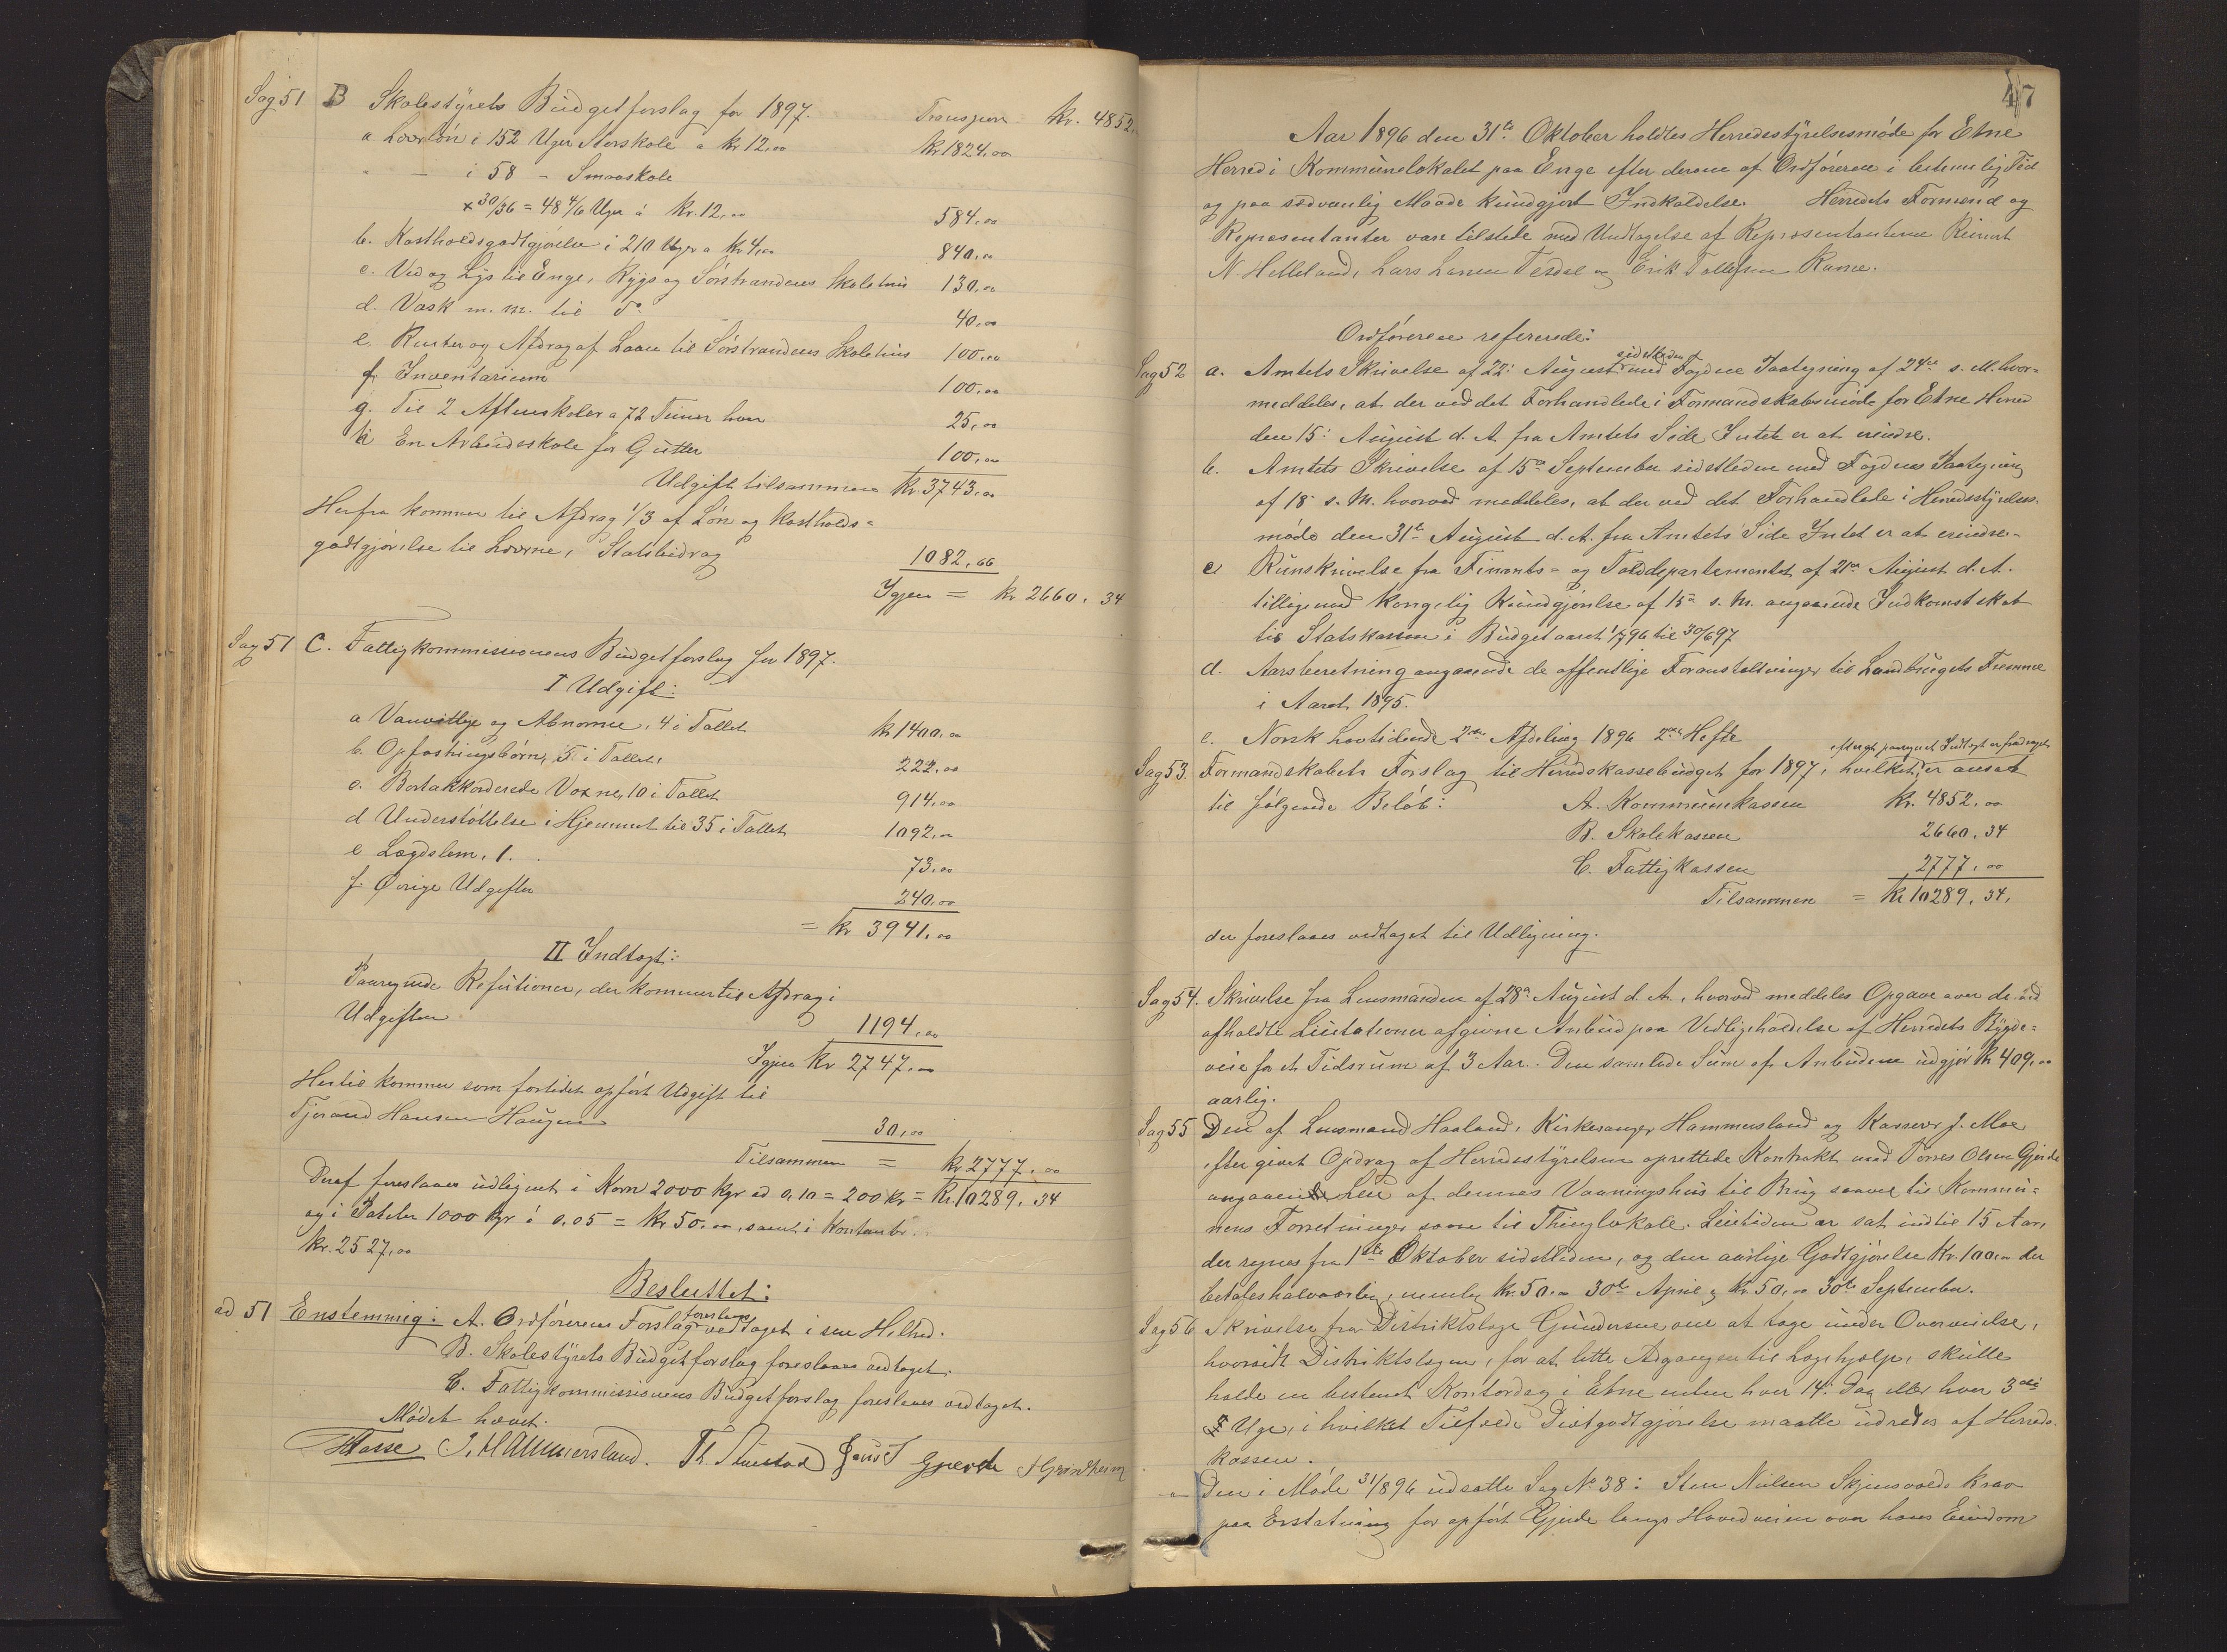 Sag 51 B Skolestyrets Budgetforslag for 1897. Transport Kr. 4852
a Lærløn i 152 Uger Storskole a kr 12,00 Kr 1824,00
" — i 58 - Smaaskole
x 30/36 = 48 4/6 Uger á Kr. 12,00 584,00
b. Kostholdsgodtgjørelse i 210 Uger a Kr 4,00 840,00
c. Ved og Lys til Enge, Rygs og Sørstrandens Skolehus 130,00
d. Vask m. m. til do 40,00
e. Renter og Afdrag af Laan til Sørstrandens Skolehus 100,00
f. Inventarium 100,00
g. Til 2 Aftenskoler a 72 Timer hver 25,00
h En Arbeidsskole for Gutter 100,00
Udgift tilsammen Kr. 3743,00
Herfra kommer til Afdrag 1/3 af Løn og Kostholds-
godtgjørelse til Lærerne, Statsbidrag 1082,66
Igjen = Kr 2660,34
Sag 51 C. Fattigkommissionens Budgetforslag for 1897.
I Udgift:
a Vanvittige og Abnorme, 4 i Tallet kr 1400,00
b. Opfostringsbørn, 5 i Tallet, 222,00
c. Bortakkorderede Voxne, 10 i Tallet 914,00
d Understøttelse i Hjemmet til 35 i Tallet 1092,00
e Lægdslem, 1. 73,00
f. Øvrige Udgifter 240,00
= kr 3941,00
II Indtægt:
Paaregnede Refusioner, der kommer til Afdrag i
Udgiften 1194,00
Igjen Kr 2747,00
Hertil kommer som fortidet opført Udgift til
Tjerand Hansen Haugen 30,00
Tilsammen = Kr 2777,00
Deraf foreslaaes udlignet i Korn 2000 Kgr ad 0,10 = 200 Kr = Kr. 10289,34
og i Poteter 1000 Kgr á 0,05 = Kr 50,00, samt i Kontanter
Kr. 2527,00
Besluttet:
ad 51 Enstemmig: A. Ordførerens Forslag foreslaaes vedtaget i sin Helhed.
B. Skolestyrets Budgetforslag foreslaaes vedtaget.
C. Fattigkommissionens Budgetforslag foreslaaes vedtaget.
Mødet hævet.
Hasse J. Hammersland. Gjerde Grindheim
47
Aar 1896 den 31te Oktober holdtes Herredsstyrelsesmøde for Etne
Herred i Kommunelokalet paa Enge efter derom af Ordføreren i betimelig Tid
og paa sædvanlig Maade kundgjort Indkaldelse. Herredets Formænd og
Repræsentanter vare tilstede med Undtagelse af Repræsentanterne Reinert
N. Helleland, Lars Larsen Tesdal og Erik Tollefsen Rame.
Ordføreren refererede:
Sag 52 a. Amtets Skrivelse af 22de August sidstleden med Fogdens Paategning af 24de s. M. hvor-
meddeles, at der ved det Forhandlede i Formandskabsmøde for Etne Herred
den 15de August d. A. fra Amtets Side Intet er at erindre.
b. Amtets Skrivelse af 15de September sidstleden med Fogdens Paategning
af 18de s. M. hvorved meddeles, at der ved det Forhandlede i Herredsstyrelses-
møde den 31te August d. A. fra Amtets Side Intet er at erindre.
c. Rundskrivelse fra Finants- og Tolddepartementet af 21de August d. A.
tilligemed Kongelig Kundgjørelse af 15de s. M. angaaende Indkomstskat
til Statskassen i Budgetaaret 1/7 96 til 30/6 97
d. Aarsberetning angaaende de offentlige Foranstaltninger til Landbrugets Fremme
i Aaret 1895.
e. Norsk Lovtidende 2den Afdeling 1896 2det Hefte
Sag 53. Formandskabets Forslag til Herredskassebudget for 1897, hvilket, efterat paaregnet Indtægt er fradraget, er ansat
til følgende Beløb: A. Kommunekassen Kr. 4852,00
B. Skolekassen 2660,34
C. Fattigkassen 2777,00
Tilsammen = Kr 10289,34,
der foreslaaes vedtaget til Udligning.
Sag 54. Skrivelse fra Lensmanden af 28de August d. A., hvorved meddeles Opgave over de ved
afholdte Licitationer afgivne Anbud paa Vedligeholdelse af Herredets Bygde-
veie for et Tidsrum af 3 Aar. Den samlede Sum af Anbudene udgjør Kr 409,00
aarlig.
Sag 55 Den af Lensmand Haaland, Kirkesanger Hammersland og Kasserer J. Moe
efter givet Opdrag af Herredsstyrelsen oprettede Kontrakt med Tørres Olsen Gjerde
angaaende Leie af dennes Vaaningshus til Brug saavel til Kommu-
nens Forretninger som til Thinglokale. Leietiden er sat indtil 15 Aar,
der regnes fra 1ste Oktober sidstleden, og den aarlige Godtgjørelse Kr. 100,00 der
betales halvaarlig, nemlig Kr. 50,00 30te April og Kr. 50,00 30te September.
Sag 56 Skrivelse fra Distriktslæge Gundersen om at tage under Overveielse,
hvorvidt Distriktslægen, for at lette Adgangen til Lægehjælp, skulle
holde en bestemt Kontordag i Etne enten hver 14de Dag eller hver 3die
Uge, i hvilket Tilfælde Diætgodtgjørelse maatte udredes af Herreds-
kassen.
Den i Møde 31/8 96 udsatte Sag No 38: Sten Nielsen Skjensvolds Krav
paa Erstatning for opført Gjerde langs Hovedveien over hans Eiendom